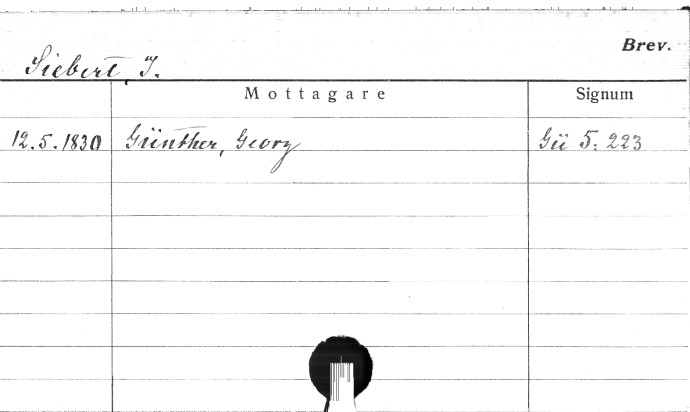 Brev.
Siebert, J.
Mottagare Signum
12.5.1830 Günther, Georg Gü 5:223